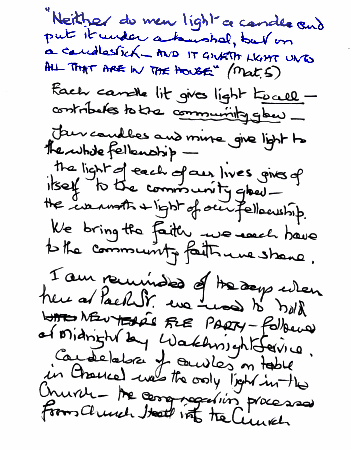 "Neither do men light a candle and
put it under a bushel, but on
a candlestick - AND IT GIVETH LIGHT UNTO
ALL THAT ARE IN THE HOUSE" (Mat. 5)
Each candle lit gives light to all -
contributes to the community glow -
Your candles and mine give light to
the whole fellowship -
the light of each of our lives gives of
itself to the community glow -
the warmth & light of our fellowship.
We bring the faith we each have
to the community faith we share.
I am reminded of the days when
here at Park St. we used to hold
NEW YEAR'S EVE PARTY - followed
at midnight by Watchnight Service.
Candelabra of candles on table
in Chancel was the only light in the
Church - the congregation processed
from Church into the Church